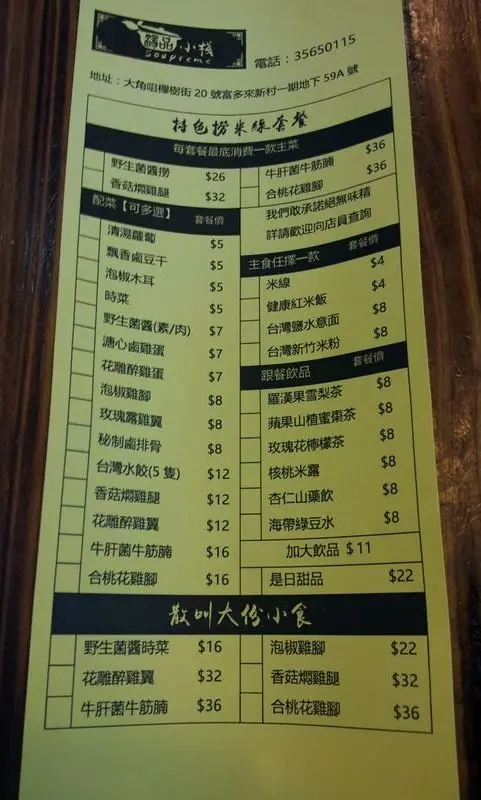 湯品·小棧
Soupreme
電話：35650115
地址：大角咀櫸樹街 20 號富多來新村一期地下 59A 號
特色撈米線套餐
每套餐最底消費一款主菜
野生菌醬撈 $26
香菇燜雞腿 $32
牛肝菌牛筋腩 $36
合桃花雞腳 $36
配菜【可多選】 套餐價
清湯蘿蔔 $5
飄香鹵豆干 $5
泡椒木耳 $5
時菜 $5
野生菌醬(素/肉) $7
溏心鹵雞蛋 $7
花雕醉雞蛋 $7
泡椒雞腳 $8
玫瑰露雞翼 $8
秘制鹵排骨 $8
台灣水餃(5 隻) $12
香菇燜雞腿 $12
花雕醉雞翼 $12
牛肝菌牛筋腩 $16
合桃花雞腳 $16
我們敢承諾絕無味精
詳請歡迎向店員查詢
主食任擇一款 套餐價
米線 $4
健康紅米飯 $4
台灣鹽水意面 $8
台灣新竹米粉 $8
跟餐飲品 套餐價
羅漢果雪梨茶 $8
蘋果山楂蜜棗茶 $8
玫瑰花檸檬茶 $8
核桃米露 $8
杏仁山藥飲 $8
海帶綠豆水 $8
加大飲品 $11
是日甜品 $22
散叫大份小食
野生菌醬時菜 $16
花雕醉雞翼 $32
牛肝菌牛筋腩 $36
泡椒雞腳 $22
香菇燜雞腿 $32
合桃花雞腳 $36